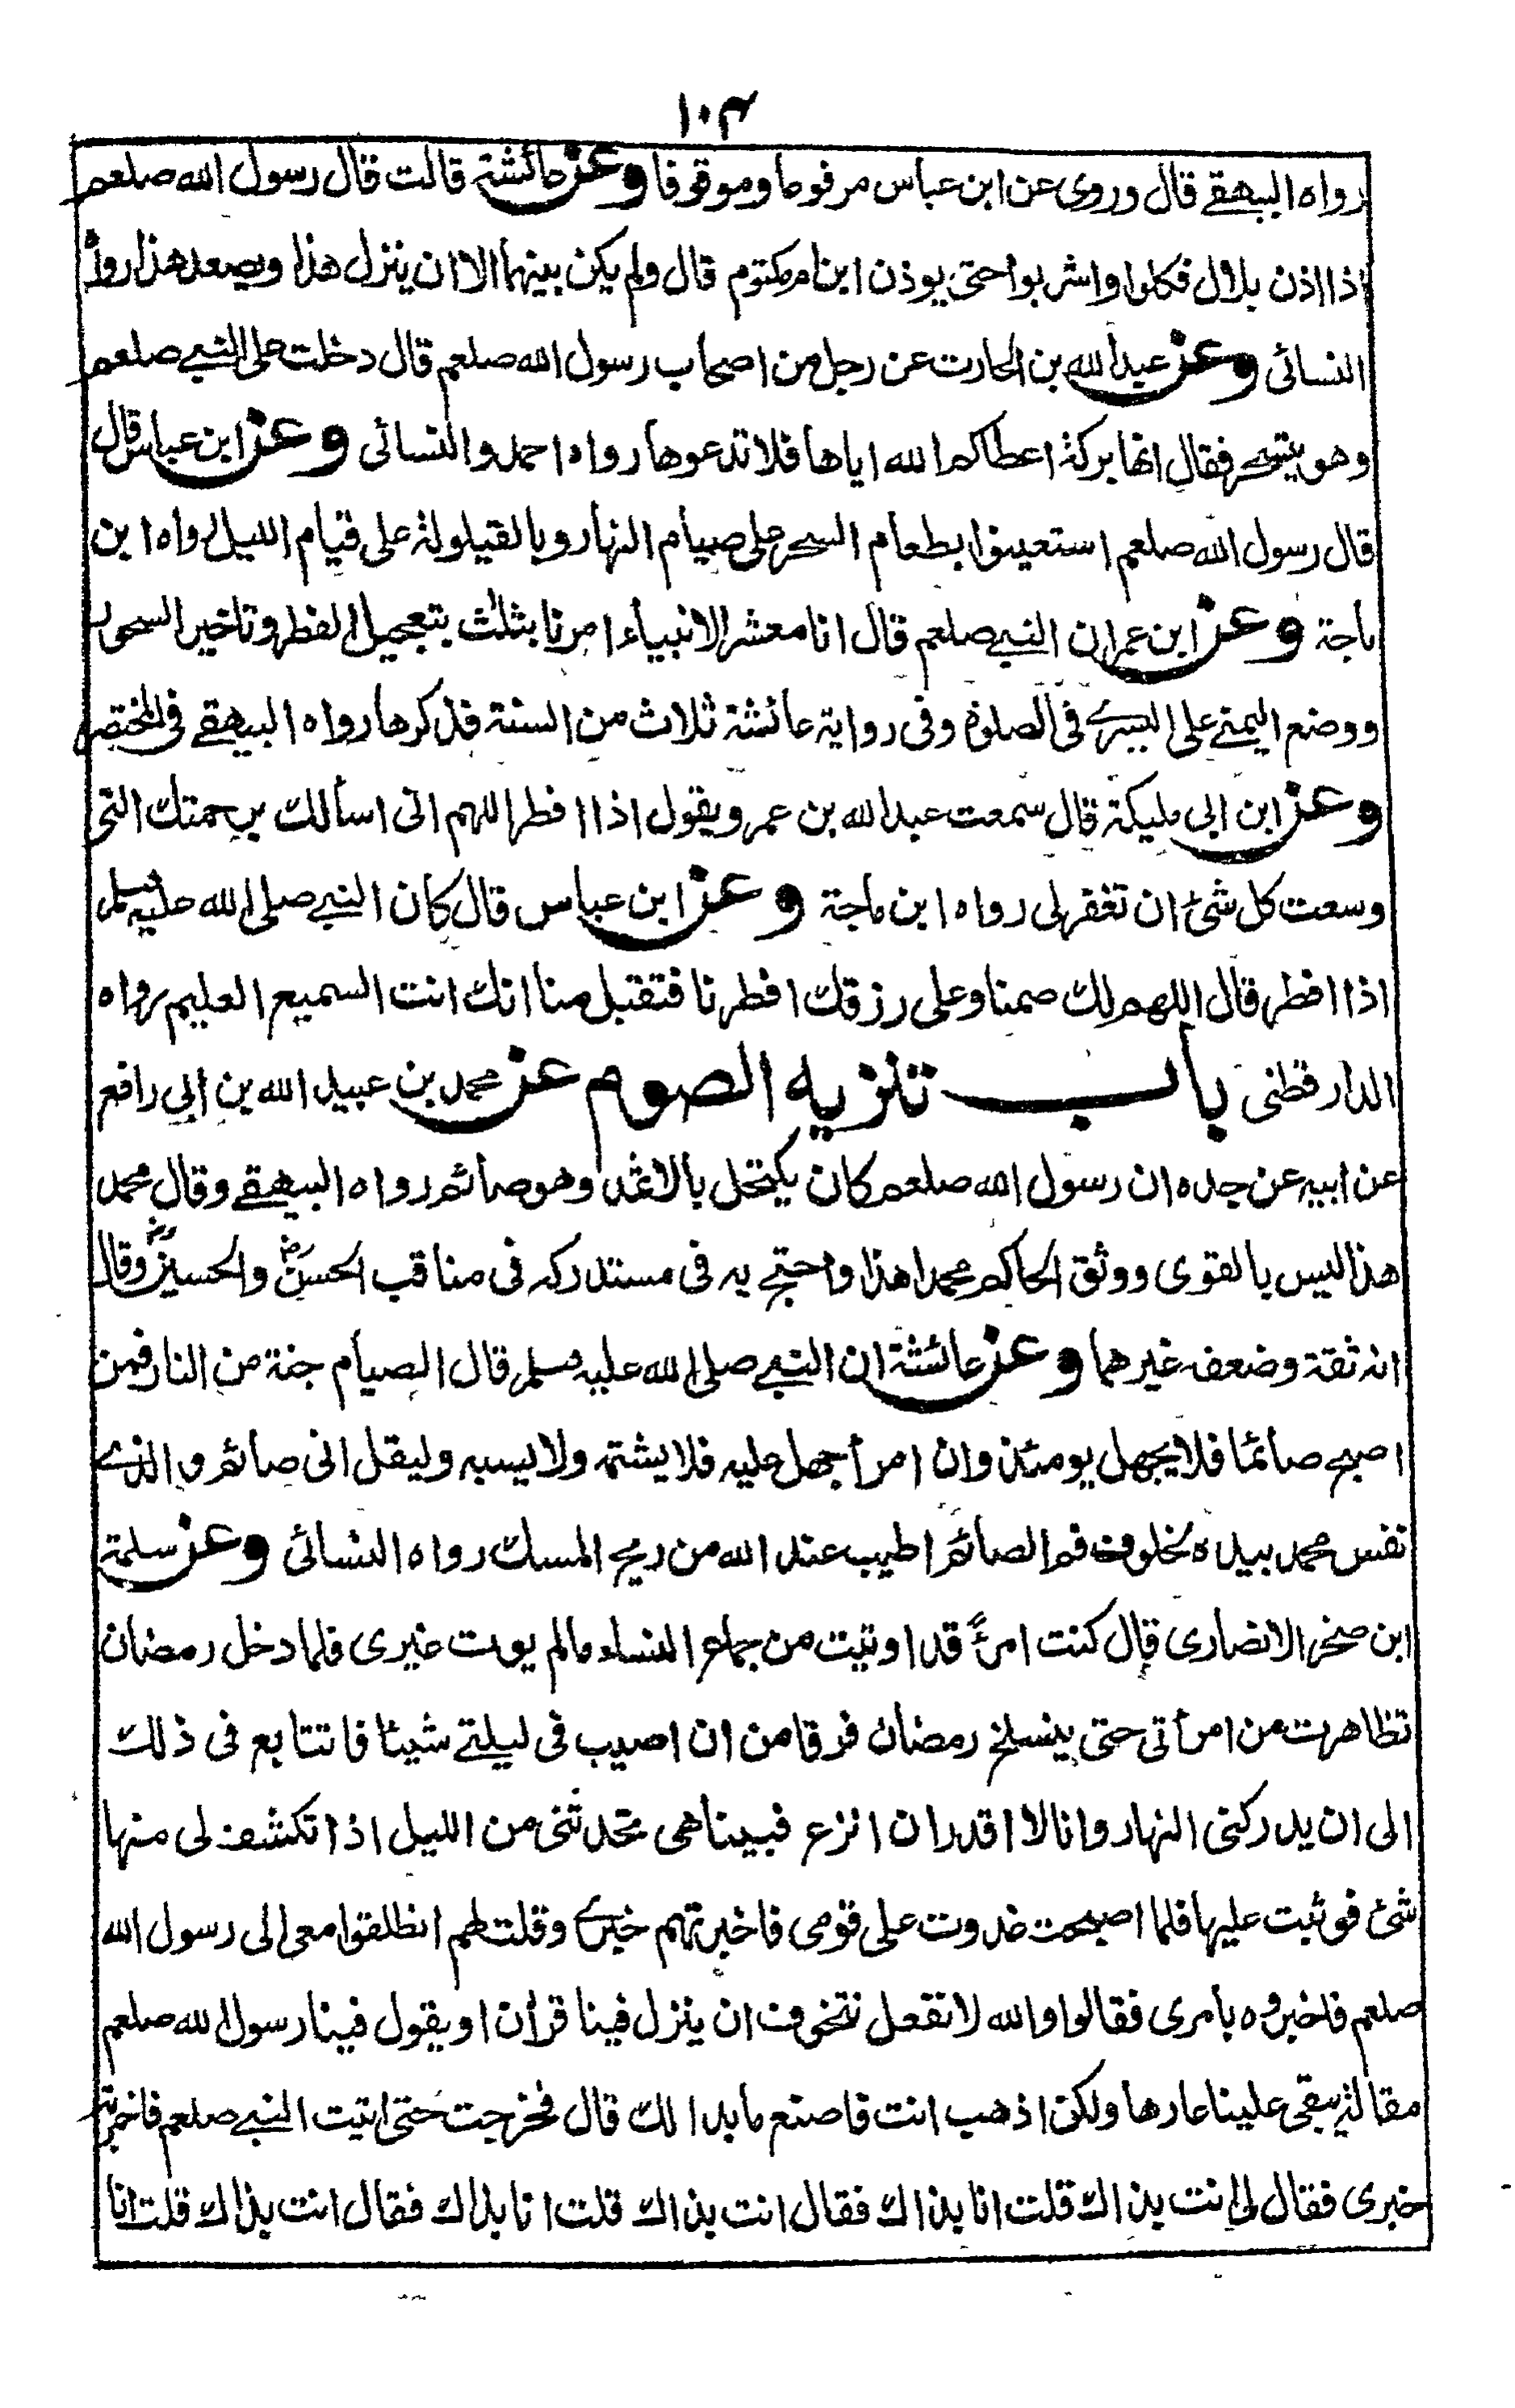 ١٠٣
رواه البيهقے قال وروى عن ابن عباس مرفوعا وموقوفا وعن عائشة قالت قال رسول الله صلعم
اذا اذن بلال فكلوا واشربوا حتى يوذن ابن ام مكتوم قال ولم يكن بينهما الا ان ينزل هذا ويصعد هذا رواه
النسائى وعن عبد الله بن الحارث عن رجل من اصحاب رسول الله صلعم قال دخلت على النبے صلعم
وهو يتسحر فقال انها بركة اعطاكم الله اياها فلا تدعوها رواه احمد والنسائى وعن ابن عباس قال
قال رسول الله صلعم استعينوا بطعام السحر على صيام النهار وبالقيلولة على قيام الليل رواه ابن
ماجة وعن ابن عمر ان النبے صلعم قال انا معشر الانبياء امرنا بثلث بتعجيل الفطر وتاخير السحور
ووضع اليمنے على اليسرے فى الصلوة وفى رواية عائشة ثلاث من السنة فذكرها رواه البيهقے فى المختصر
وعن ابن ابى مليكة قال سمعت عبد الله بن عمر ويقول اذا افطر اللهم انى اسألك برحمتك التى
وسعت كل شئ ان تغفر لى رواه ابن ماجة وعن ابن عباس قال كان النبے صلى الله عليه وسلم
اذا افطر قال اللهم لك صمنا وعلى رزقك افطرنا فتقبل منا انك انت السميع العليم رواه
الدارقطنى باب تنزيه الصوم عن محمد بن عبيد الله بن ابى رافع
عن ابيه عن جده ان رسول الله صلعم كان يكتحل بالاثمد وهو صائم رواه البيهقے وقال محمد
هذا ليس بالقوى ووثق الحاكم محمدا هذا واحتج به فى مستدركه فى مناقب الحسنؓ والحسينؓ وقال
انه ثقة وضعف غيرهما وعن عائشة ان النبے صلى الله عليه وسلم قال الصيام جنة من النار فمن
اصبح صائما فلا يجهل يومئذ وان امرأ جهل عليه فلا يشتمه ولا يسبه وليقل انى صائم والذے
نفس محمد بيده لخلوف فم الصائم اطيب عند الله من ريح المسك رواه النسائى وعن سلمة
ابن صخر الانصارى قال كنت امرءً قد اوتيت من جماع النساء مالم يوت غيرى فلما دخل رمضان
تظاهرت من امرأتى حتى ينسلخ رمضان فرقا من ان اصيب فى ليلتے شيئا فاتتابع فى ذلك
الى ان يدركنى النهار وانا لا اقدر ان انزع فبيناهى تحدثنى من الليل اذا تكشف لى منها
شئ فوثبت عليها فلما اصبحت غدوت على قومى فاخبرتهم خبرے وقلت لهم انطلقوا معى الى رسول الله
صلعم فاخبروه بأمرى فقالوا والله لا نفعل نتخوف ان ينزل فينا قرأن او يقول فينا رسول الله صلعم
مقالة يبقى علينا عارها ولكن اذهب انت فاصنع ما بدا لك قال فخرجت حتى اتيت النبے صلعم فاخبرته
خبرى فقال لى انت بذاك قلت انا بذاك فقال انت بذاك قلت انا بذاك فقال انت بذاك قلت انا